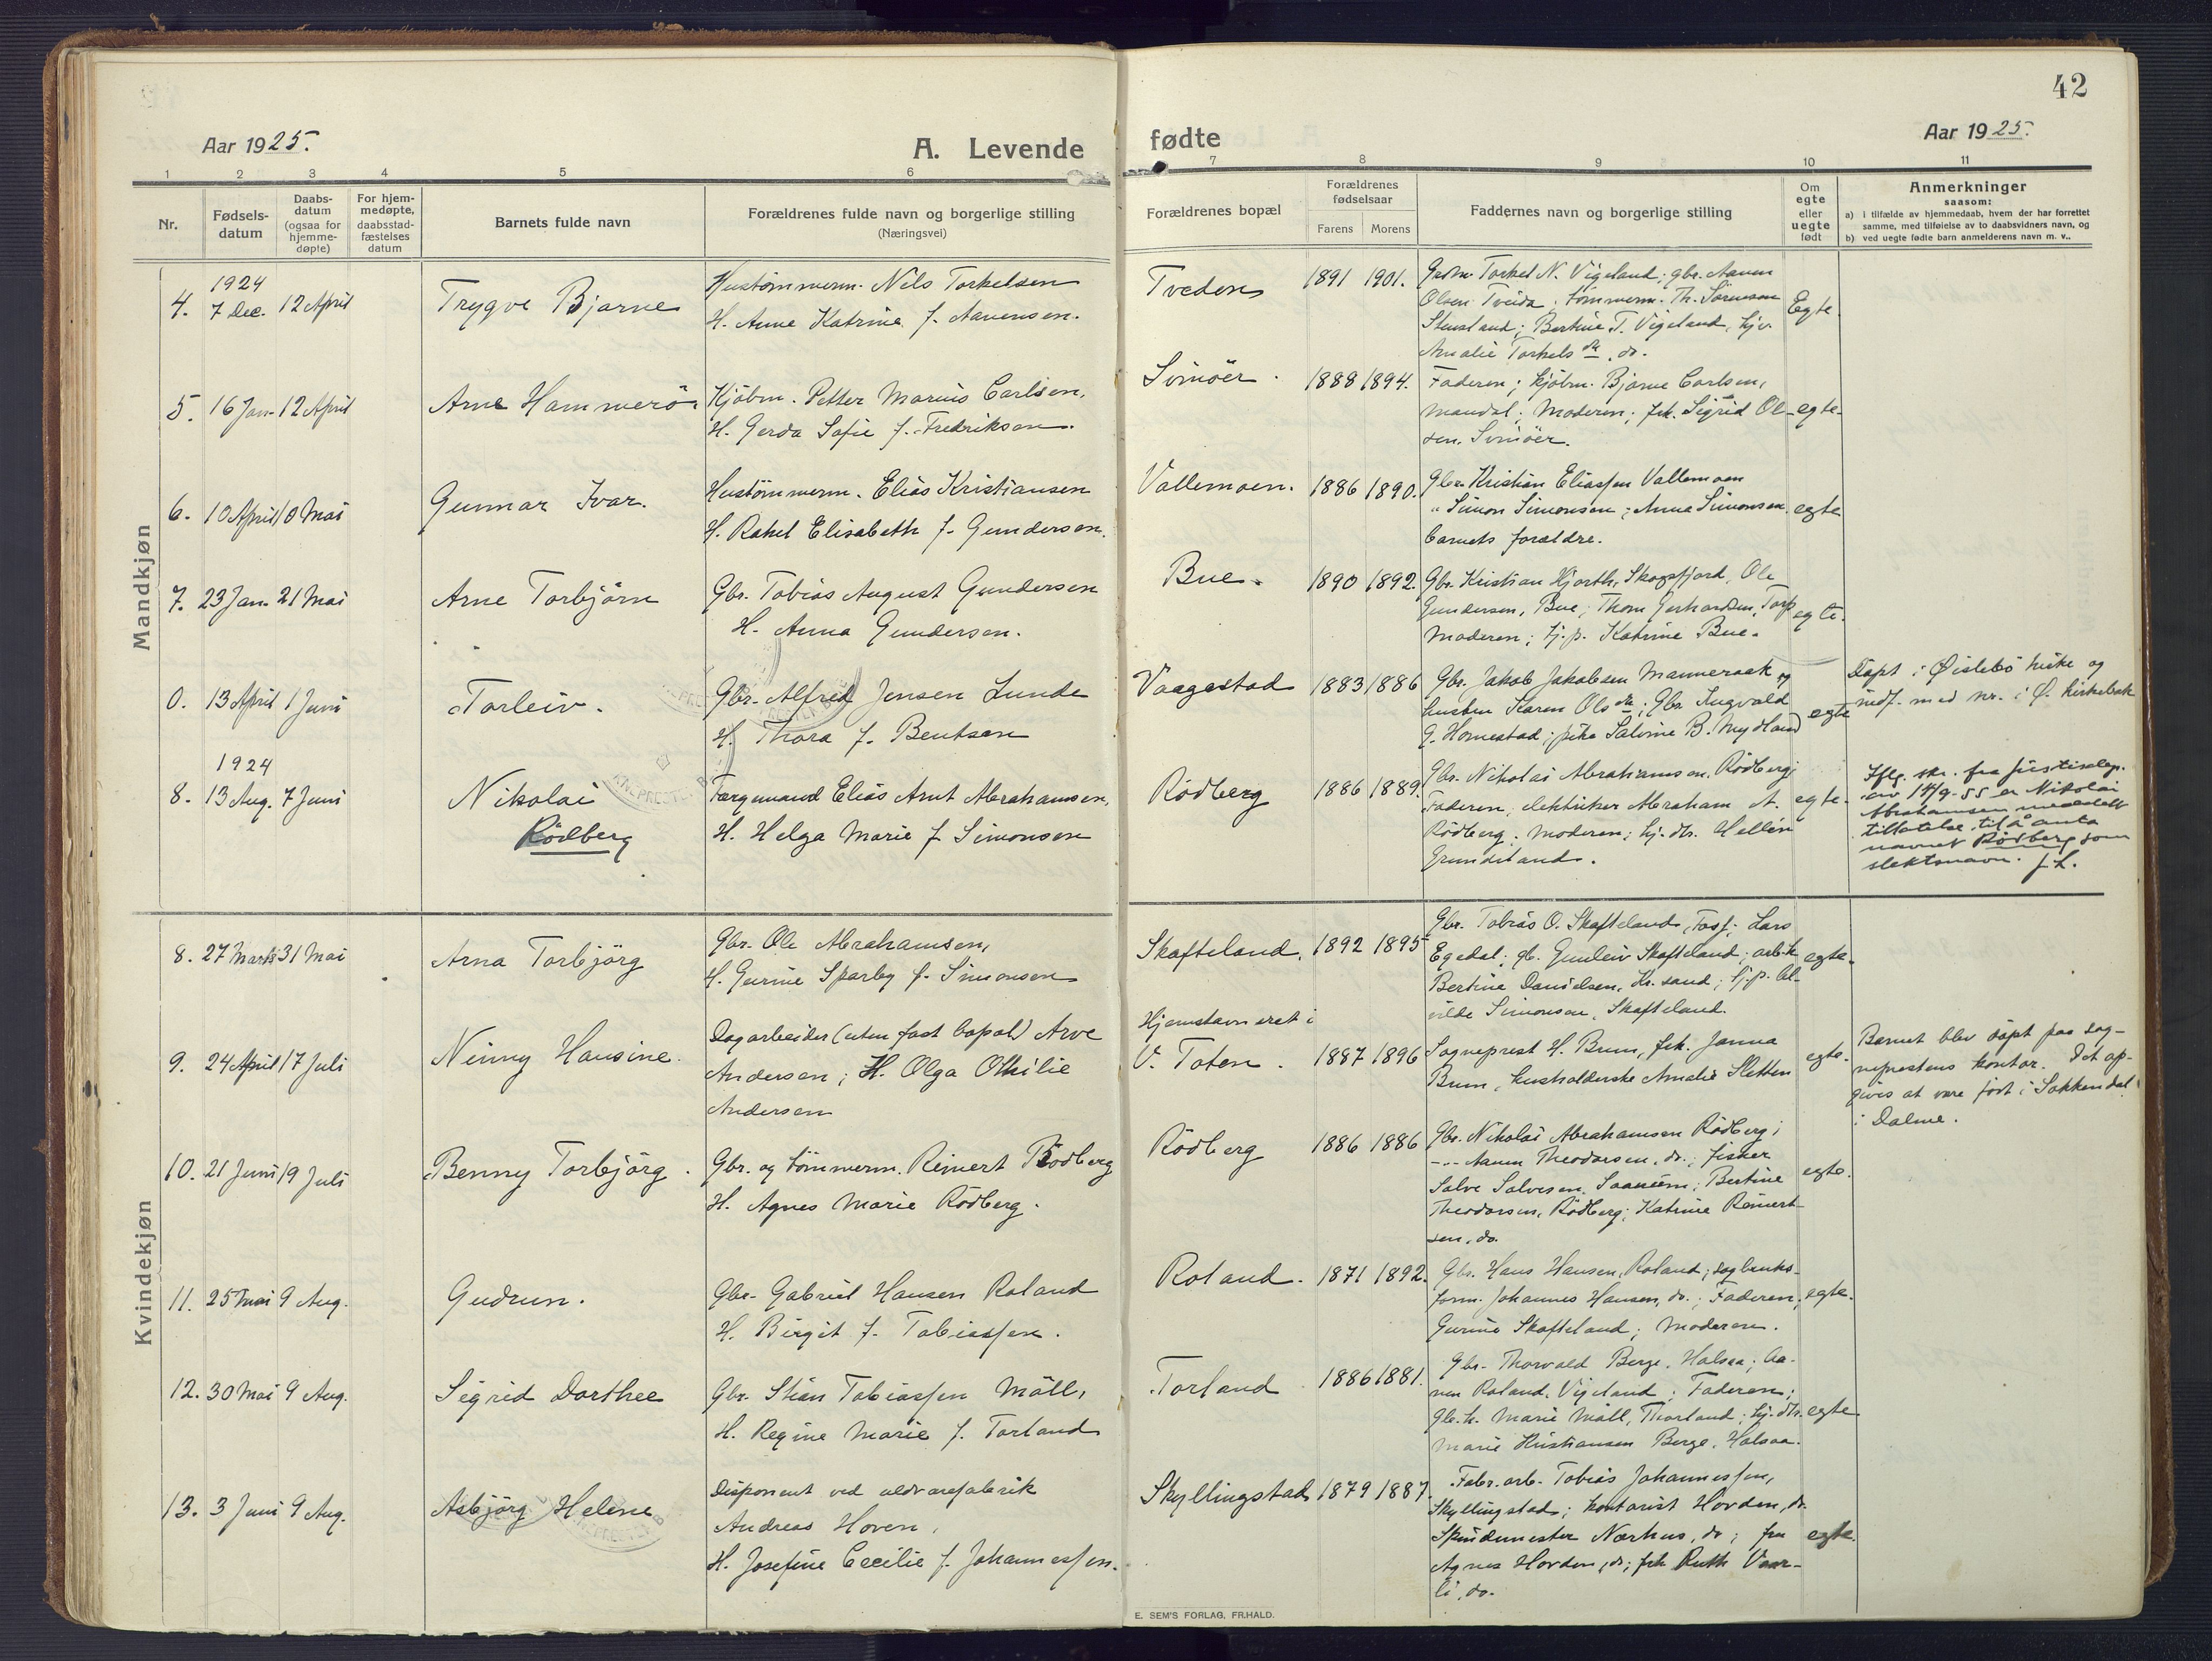 42
Aar 1925.
A. Levende
fødte
Aar 1925.
1 2 3 4 5 6 7 8 9 10 11
Nr.
Fødsels-
datum
Daabs-
datum
(ogsaa for
hjemme-
døpte)
For hjem-
medøpte,
daabsstad-
fæstelses
datum
Barnets fulde navn
Forældrenes fulde navn og borgerlige stilling
(Næringsvei)
Forældrenes bopæl
Forældrenes
fødselsaar
Farens Morens
Faddernes navn og borgerlige stilling
Om
egte
eller
uegte
født
Anmerkninger
saasom:
a) i tilfælde av hjemmedaab, hvem der har forrettet
samme, med tilføielse av to daabsvidners navn, og
b) ved uegte fødte barn anmelderens navn m. v..
Mandkjøn
4. 1924
7 Dec. 12 April
Trygve Bjarne
Hustømmerm. Nils Torkelsen
H. Anne Katrine f. Aanensen.
Tveden 1891 1901.
Torkel N. Vigeland; gbr. Aanen
Olsen Tveida, tømmerm. Th. Sørensen
Stensland; Bertine T. Vigeland, hjv.
Amalie Torkelsdtr, do.
Egte.
5. 16 Jan. 12 April
Arne Hammerö
Kjöbm. Petter Marius Carlsen,
H. Gerda Sofie f. Fredriksen.
Svinöer. 1888 1894.
Faderen; kjöbm. Bjarne Carlsen,
Mandal; Moderen; frk. Sigrid Ol-
sen, Svinöer.
egte.
6. 10 April 10 Mai
Gunnar Ivar.
Hustömmerm. Elias Kristiansen
H. Rakel Elisabeth f. Gundersen.
Vallemoen. 1886 1890.
Gbr. Kristian Eliassen Vallemoen
" Simon Simonsen; Anna Simonsen
barnets forældre.
egte
7. 23 Jan. 21 Mai
Arne Torbjörn
Gbr. Tobias August Gundersen
H. Anna Gundersen.
Bue. 1890 1892.
Gbr. Kristian Hjorth, Skogsfjord, Ole
Gundersen, Bue; Thom Gerhardsen, Torp
Moderen; hj.p. Katrine Bue.
egte.
0. 13 April 1 Juni
Torleiv.
Gbr. Alfred Jensen Lunde
H. Thora f. Bentsen
Vaagestad 1883 1886
Gbr. Jakob Jakobsen Manneraak og
hustru Karen Olsdtr; Gbr. Ingvald
G. Homestad; pike Salime B. Mydland
egte
Döpt i Øislebö kirke og
indf. med nr. i Ø. kirkebok
8. 1924
13 Aug. 7 Juni
Nikolai
Rödberg
Færgemand Elias Arnt Abrahamsen,
H. Helga Marie f. Simonsen
Rödberg 1886 1889.
Gbr. Nikolai Abrahamsen, Rödberg;
Faderen; elektriker Abraham A.
Rödberg; Moderen; hj. dtr. Hellin
Grundeland.
egte.
Iflg. skr. fra justisdep.
av 14/9-55 er Nikolai
Abrahamsen meddelt
tillatelse til å anta
navnet Rødberg som
slektsnavn.
Kvindekjøn
8. 27 Marts 31 Mai
Arna Torbjörg
Gbr. Ole Abrahamsen,
H. Gurine Sparby f. Simonsen
Skafteland. 1892 1895
Gbr. Tobias O. Skafteland, Lars
Egedal; gb. Gunleiv Skafteland; arb.k.
Bertine Danielsen, Kr. sand; hj.p. Al-
vilde Simonsen, Skafteland.
egte.
9. 24 April 17 Juli
Ninny Hansine.
Dagarbeider (uten fast bopæl) Arve
Andersen; H. Olga Othilie
Andersen
Hjemstavnsret i
V. Toten. 1887 1896
Sogneprest H. Brun, frk. Janna
Brun, husholderske Amalie Sletten
egte.
Barnet blev döpt paa sog-
neprestens kontor. Det op-
gives at være født i Sokkendal
i Dalene.
10. 21 Juni 19 Juli
Benny Torbjörg.
Gbr. og tömmerm. Reinert Rödberg
H. Agnes Marie Rödberg.
Rödberg 1886 1886
Gbr. Nikolai Abrahamsen Rödberg;
-"- Aanen Theodorsen, do.; fisker
Salve Salvesen, Saanum; Bertine
Theodorsen, Rödberg; Katrine Reinert-
sen, do.
egte.
11. 25 Mai 9 Aug.
Gudrun.
Gbr. Gabriel Hansen Roland
H. Birgit f. Tobiassen.
Roland. 1871 1892.
Gbr. Hans Hansen, Roland; sagbruks-
form. Johannes Hansen, do.; Faderen;
Gurine Skafteland; Moderen.
egte.
12. 30 Mai 9 Aug.
Sigrid Dorthee
Gbr. Stian Tobiassen Möll,
H. Regine Marie f. Torland
Torland 1886 1881.
Gbr. Thorvald Berge, Halsaa; Aa-
nen Roland, Vigeland; Faderen;
Gb.k. Marie Möll, Thorland; hj.dtr.
Marie Kristiansen Berge, Halsaa.
egte
13. 3 Juni 9 Aug.
Asbjörg Helene
Disponent ved uldvarefabrik
Andreas Hoven,
H. Josefine Cecilie f. Johannessen.
Skyllingstad 1879 1887.
Fabr. arb. Tobias Johannessen,
Skyllingstad; kontorist Hovden, do.
Spindemester Nærhus, do; fru
Agnes Hovden, do; frk Ruth Vaar-
li, do.
egte.
E. SEM'S FORLAG, FR.HALD.